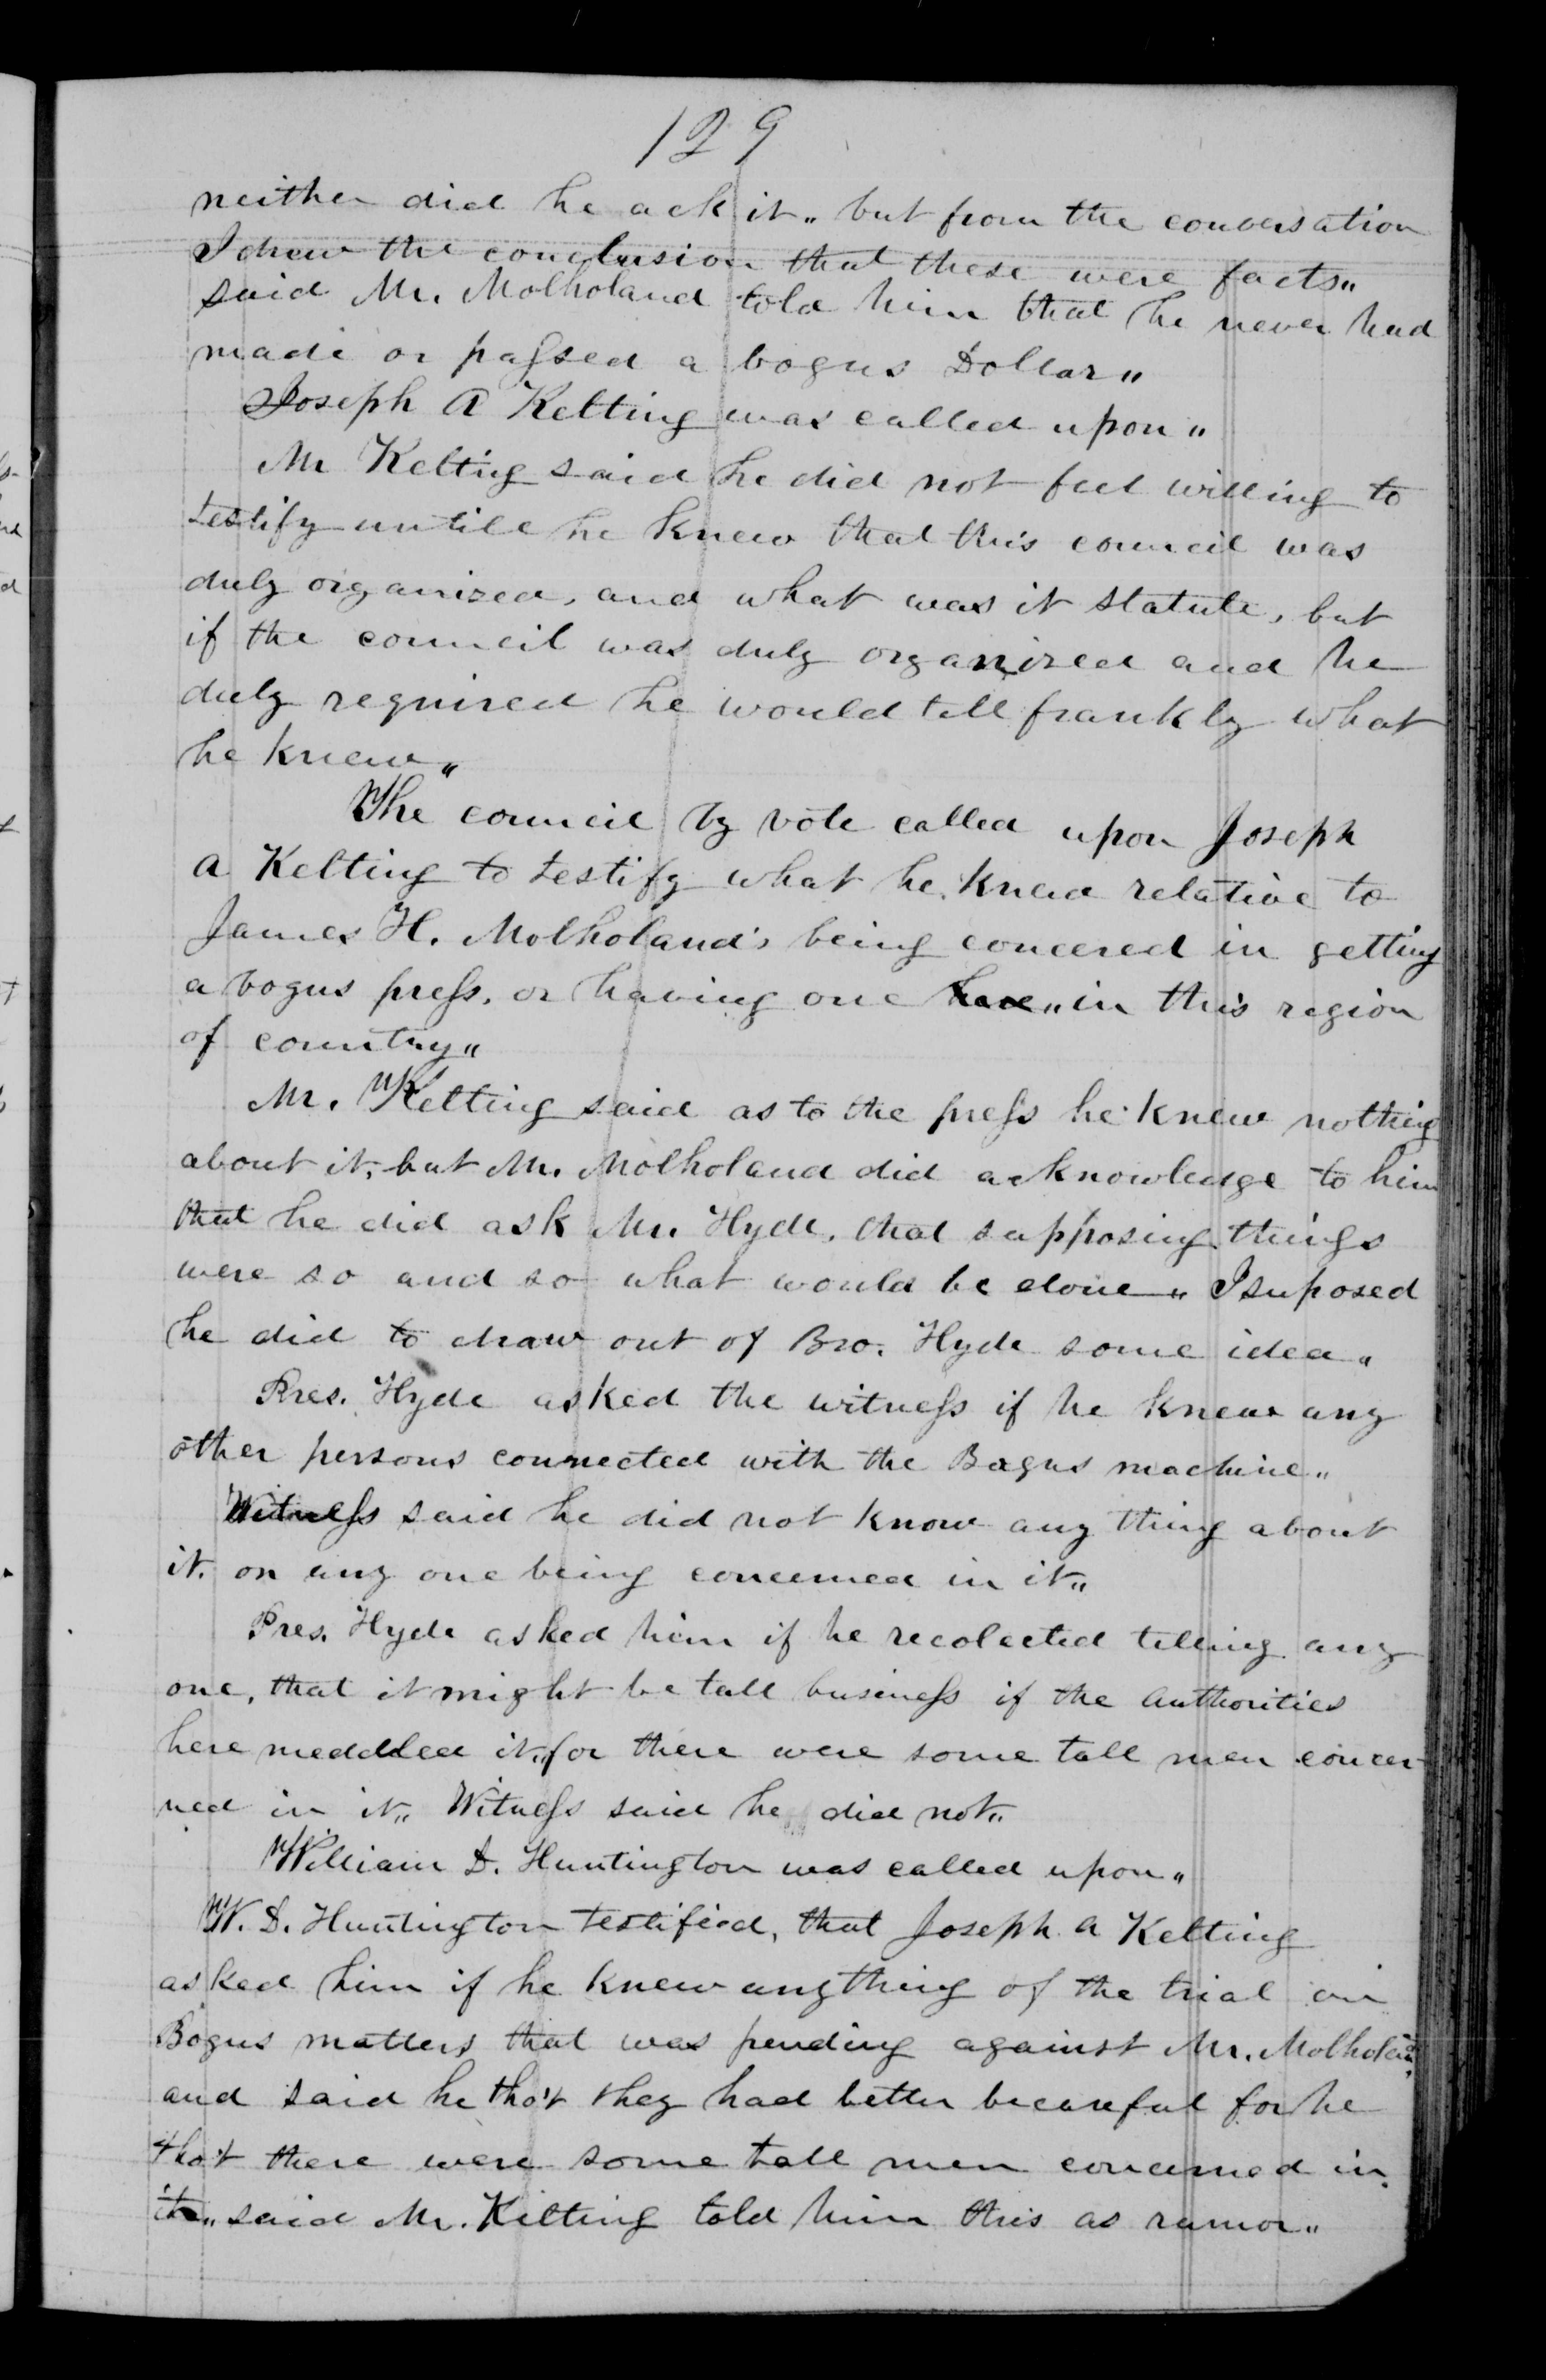 129
neither did he ack it„ but from the conversation
I drew the conclusion that these were facts„
said Mr. Molholand told him that he never had
made or passed a bogus Dollar„
Joseph A Kelting was called upon„
Mr Keltig said he did not feel willing to
testify untill he knew that this council was
duly organized, and what was it statute, but
if the council was duly organized and he
duly required he would tell frankly what
he knew„
The council by vote called upon Joseph
A Kelting to testify what he knew relative to
James H. Molholand's being concered in getting
a bogus press, or having one here„ in this region
of country„
Mr. Kelting said as to the press he knew nothing
about it, but Mr. Molholand did acknowledge to him
that he did ask Mr. Hyde, that supposing things
were so and so what would be done„ I suposed
he did to draw out of Bro. Hyde some idea„
Pres. Hyde asked the witness if he knew any
other persons connected with the Bogus machine„
Witness said he did not know any thing about
it. or any one being concerned in it„
Pres. Hyde asked him if he recolected telling any
one, that it might be tall business if the authorities
here meddled it„ for there were some tall men concer-
ned in it„ Witness said he did not„
William D. Huntington was called upon„
W. D. Huntington testified, that Joseph A Kelting
asked him if he knew anything of the trial on
Bogus matters that was pending against Mr. Molholand,
and said he tho't they had better be careful for he
tho't there were some tall men concerned in
it„ said Mr. Kelting told him this as rumor„